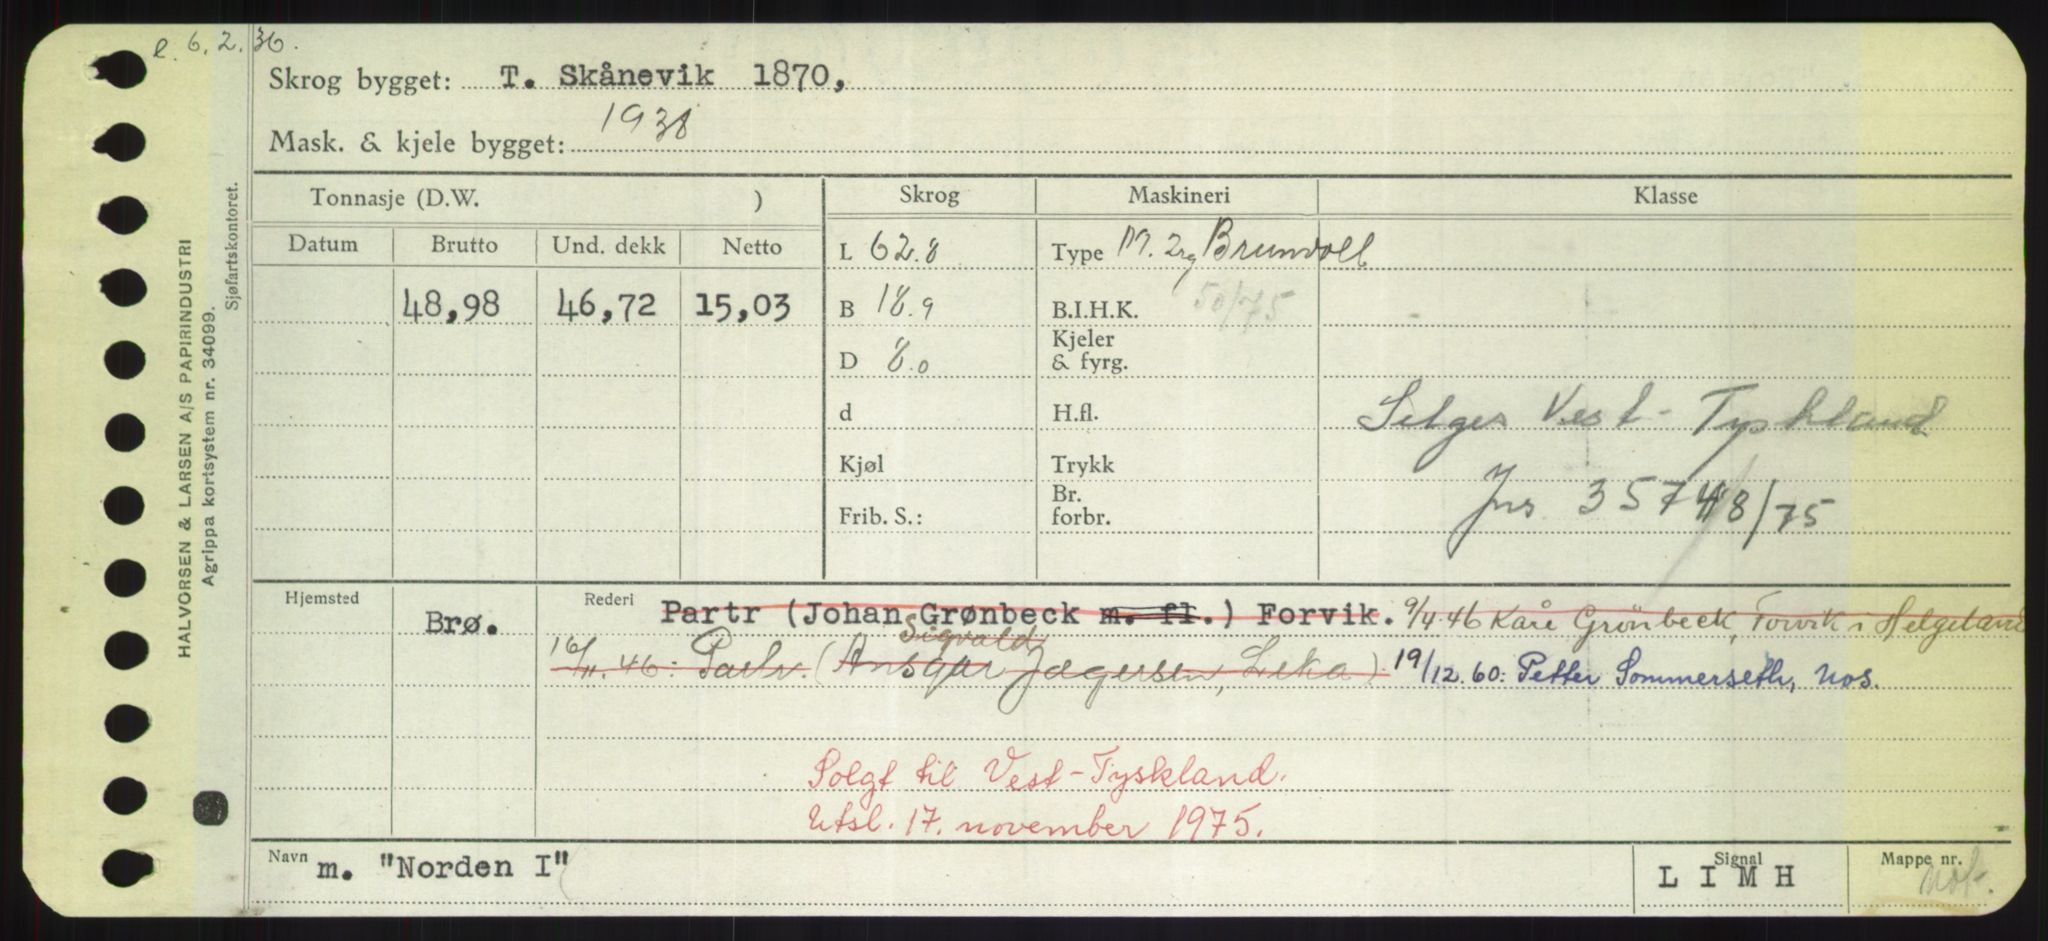 e. 6.2.36.
Skrog bygget: T. Skånevik 1870,
Mask. & kjele bygget: 1938
Tonnasje (D.W. ) Skrog Maskineri Klasse
Datum Brutto Und. dekk Netto L 62.8 Type M. 2rg Brunvoll
48,98 46,72 15,03 B 18.9 B.I.H.K. 50/75
D 8.0 Kjeler & fyrg.
d H.fl. Selges Vest-Tyskland
Kjøl Trykk
Frib. S.: Br. forbr. Jnr. 35748/75
Hjemsted Brø. Rederi Partr (Johan Grønbeck m. fl.) Forvik. 9/4 46 Kåre Grönbeck, Forvik i Helgeland
Sigvald
16/11. 46: Partr. (Ansgar Jægersen, Leka) 19/12. 60: Petter Sommerseth, Nos.
Solgt til Vest-Tyskland.
Utsl. 17. november 1975.
Navn m. "Norden I" Signal L I M H Mappe nr.
HALVORSEN & LARSEN A/S PAPIRINDUSTRI
Agrippa kortsystem nr. 34099.
Sjøfartskontoret.